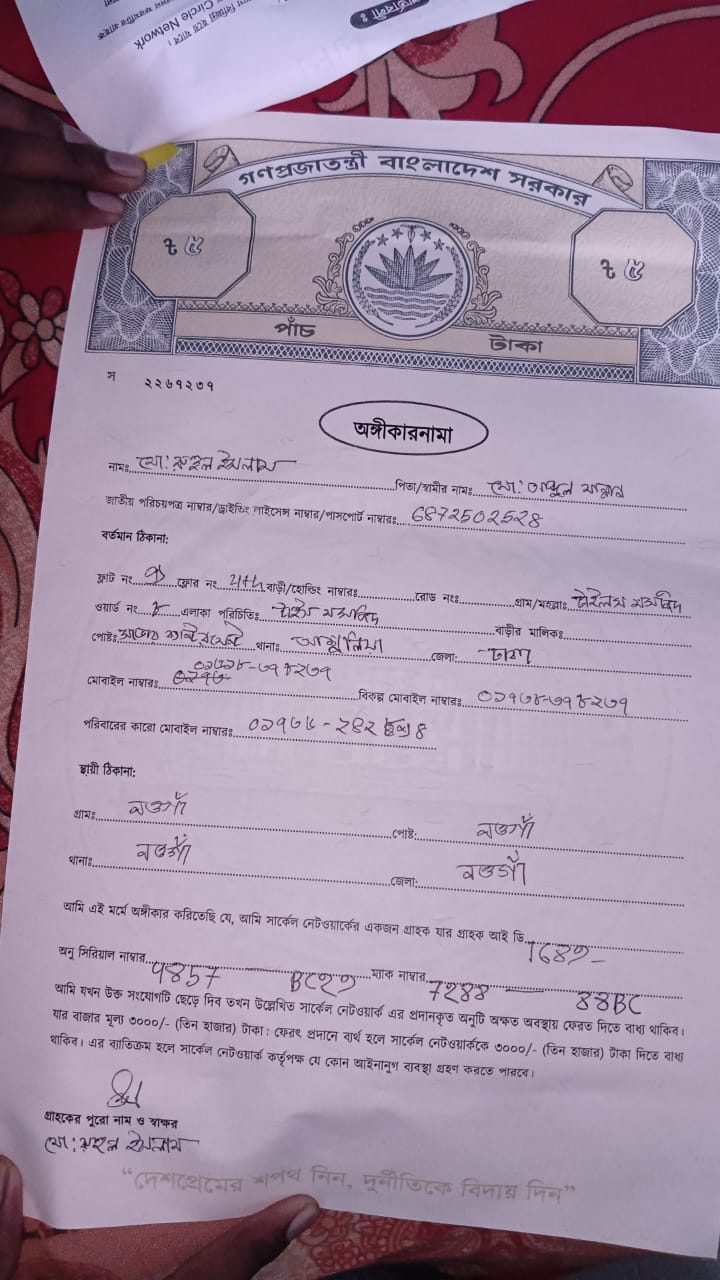 Circle Network
গণপ্রজাতন্ত্রী বাংলাদেশ সরকার
৳ ৫ ৳ ৫
পাঁচ টাকা
স ২২৬১২৩৭
অঙ্গীকারনামা
নামঃ মো: রুহুল ইসলাম পিতা/স্বামীর নামঃ মো: আব্দুল মান্নান
জাতীয় পরিচয়পত্র নাম্বার/ড্রাইভিং লাইসেন্স নাম্বার/পাসপোর্ট নাম্বারঃ 6872502528
বর্তমান ঠিকানা:
ফ্লাট নং ফ্লোর নং 4th বাড়ী/হোল্ডিং নাম্বারঃ রোড নংঃ গ্রাম/মহল্লাঃ
ওয়ার্ড নং এলাকা পরিচিতিঃ বাড়ীর মালিকঃ
পোষ্টঃ থানাঃ আশুলিয়া জেলা: ঢাকা
মোবাইল নাম্বারঃ বিকল্প মোবাইল নাম্বারঃ ০১৭৩৮-৭৪২৩৭
পরিবারের কারো মোবাইল নাম্বারঃ
স্থায়ী ঠিকানা:
গ্রামঃ নওগাঁ পোষ্ট: নওগাঁ
থানাঃ নওগাঁ জেলা: নওগাঁ
আমি এই মর্মে অঙ্গীকার করিতেছি যে, আমি সার্কেল নেটওয়ার্কের একজন গ্রাহক যার গ্রাহক আই ডি
অনু সিরিয়াল নাম্বার ম্যাক নাম্বার
আমি যখন উক্ত সংযোগটি ছেড়ে দিব তখন উল্লেখিত সার্কেল নেটওয়ার্ক এর প্রদানকৃত অনুটি অক্ষত অবস্থায় ফেরত দিতে বাধ্য থাকিব।
যার বাজার মূল্য ৩০০০/- (তিন হাজার) টাকা: ফেরৎ প্রদানে ব্যর্থ হলে সার্কেল নেটওয়ার্ককে ৩০০০/- (তিন হাজার) টাকা দিতে বাধ্য
থাকিব। এর ব্যতিক্রম হলে সার্কেল নেটওয়ার্ক কর্তৃপক্ষ যে কোন আইনানুগ ব্যবস্থা গ্রহণ করতে পারবে।
গ্রাহকের পুরো নাম ও স্বাক্ষর
মো: রুহুল ইসলাম
“দেশপ্রেমের শপথ নিন, দুর্নীতিকে বিদায় দিন”